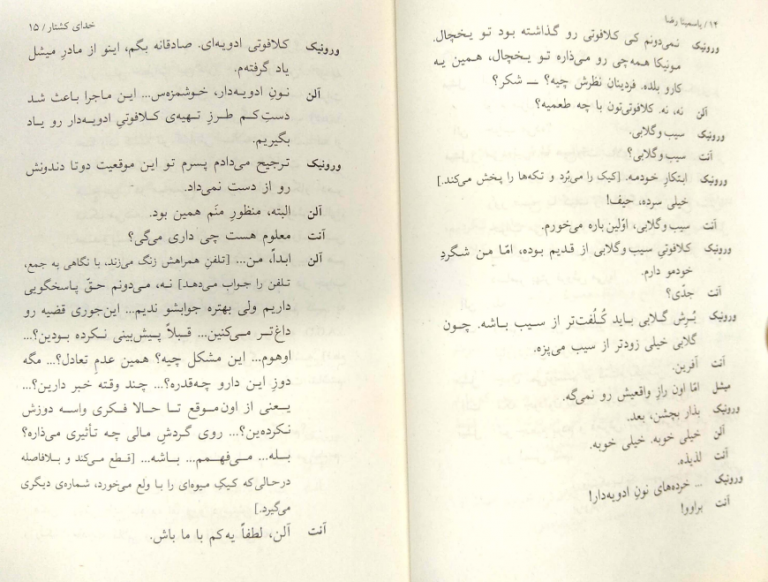 ۱۴ / یاسمینا رضا
ورونیک نمی‌دونم کی کلافوتی رو گذاشته بود تو یخچال.
مونیکا همه‌چی رو می‌ذاره تو یخچال، همین یه
کارو بلده. فردینان نظرش چیه؟ ــ شکر؟
آلن نه، نه. کلافوتی‌تون با چه طعمیه؟
ورونیک سیب و گلابی.
آنت سیب و گلابی؟
ورونیک ابتکارِ خودمه. [کیک را می‌بُرد و تکه‌ها را پخش می‌کند.]
خیلی سرده، حیف!
آنت سیب و گلابی، اوّلین باره می‌خورم.
ورونیک کلافوتیِ سیب و گلابی از قدیم بوده، امّا من شگردِ
خودمو دارم.
آنت جدّی؟
ورونیک بُرشِ گلابی باید کُلُفت‌تر از سیب باشه. چون
گلابی خیلی زودتر از سیب می‌پزه.
آنت آفرین.
میشل امّا اون رازِ واقعیش رو نمی‌گه.
ورونیک بذار بچشن، بعد.
آلن خیلی خوبه. خیلی خوبه.
آنت لذیذه.
ورونیک ... خرده‌های نونِ ادویه‌دار!
آنت براوو!
خدای کشتار / ۱۵
ورونیک کلافوتی ادویه‌ای. صادقانه بگم، اینو از مادرِ میشل
یاد گرفته‌م.
آلن نونِ ادویه‌دار، خوشمزه‌س... این ماجرا باعث شد
دستِ‌کم طرزِ تهیه‌ی کلافوتیِ ادویه‌دار رو یاد
بگیریم.
ورونیک ترجیح می‌دادم پسرم تو این موقعیت دوتا دندونش
رو از دست نمی‌داد.
آلن البته، منظورِ منَم همین بود.
آنت معلوم هست چی داری می‌گی؟
آلن ابداً، من... [تلفنِ همراهش زنگ می‌زند، با نگاهی به جمع،
تلفن را جواب می‌دهد] نه، می‌دونم حقّ پاسخگویی
داریم ولی بهتره جوابشو ندیم... این‌جوری قضیه رو
داغ‌تر می‌کنین... قبلاً پیش‌بینی نکرده بودین؟...
اوهوم... این مشکل چیه؟ همین عدمِ تعادل؟... مگه
دوزِ این دارو چه‌قدره؟... چند وقته خبر دارین؟...
یعنی از اون‌موقع تا حالا فکری واسه دوزش
نکرده‌ین؟... روی گردشِ مالی چه تأثیری می‌ذاره؟
بله... می‌فهمم... باشه... [قطع می‌کند و بلافاصله
درحالی‌که کیکِ میوه‌ای را با ولع می‌خورد، شماره‌ی دیگری
می‌گیرد.]
آنت آلن، لطفاً یه‌کم با ما باش.